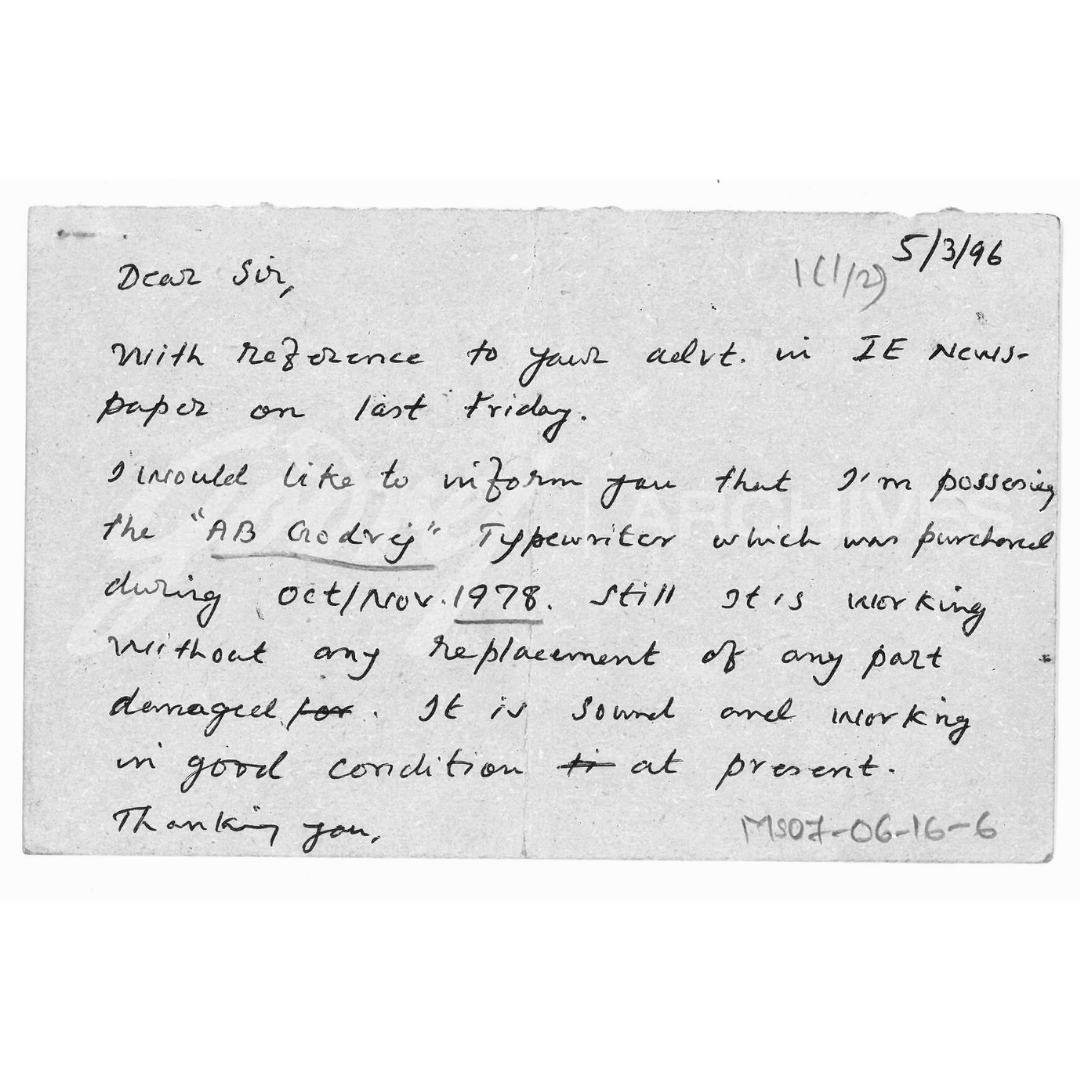 5/3/96
1(1/2)
Dear Sir,
With reference to your advt. in IE News-
paper on last Friday.
I would like to inform you that I'm possesing
the "AB Godrej" Typewriter which was purchased
during Oct/Nov. 1978. Still It is working
without any replacement of any part
damaged for. It is sound and working
in good condition ti at present.
Thanking you,
MS07-06-16-6
ARCHIVES